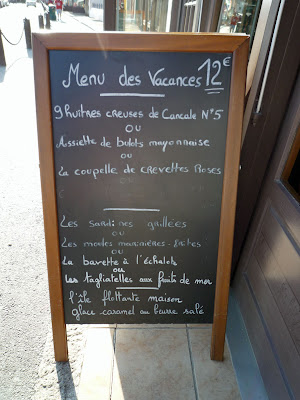 Menu des Vacances 12€
9 huîtres creuses de Cancale N°5
ou
Assiette de bulots mayonnaise
ou
La coupelle de crevettes Roses
Les sardines grillées
ou
Les moules marinières-frites
ou
La bavette à l'échalote
ou
Les tagliatelles aux fruits de mer
l'île flottante maison
glace caramel au beurre salé